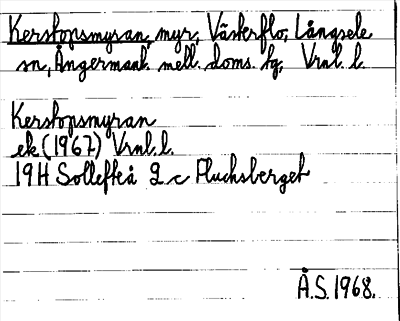 Kerstopsmyran, myr, Västerflo, Långsele
sn, Ångermanl. mell. doms. tg, Vrnl. l.
Kerstopsmyran
ek (1967) Vrnl. l.
19H Sollefteå 2 c Fluchsberget
Å.S. 1968.